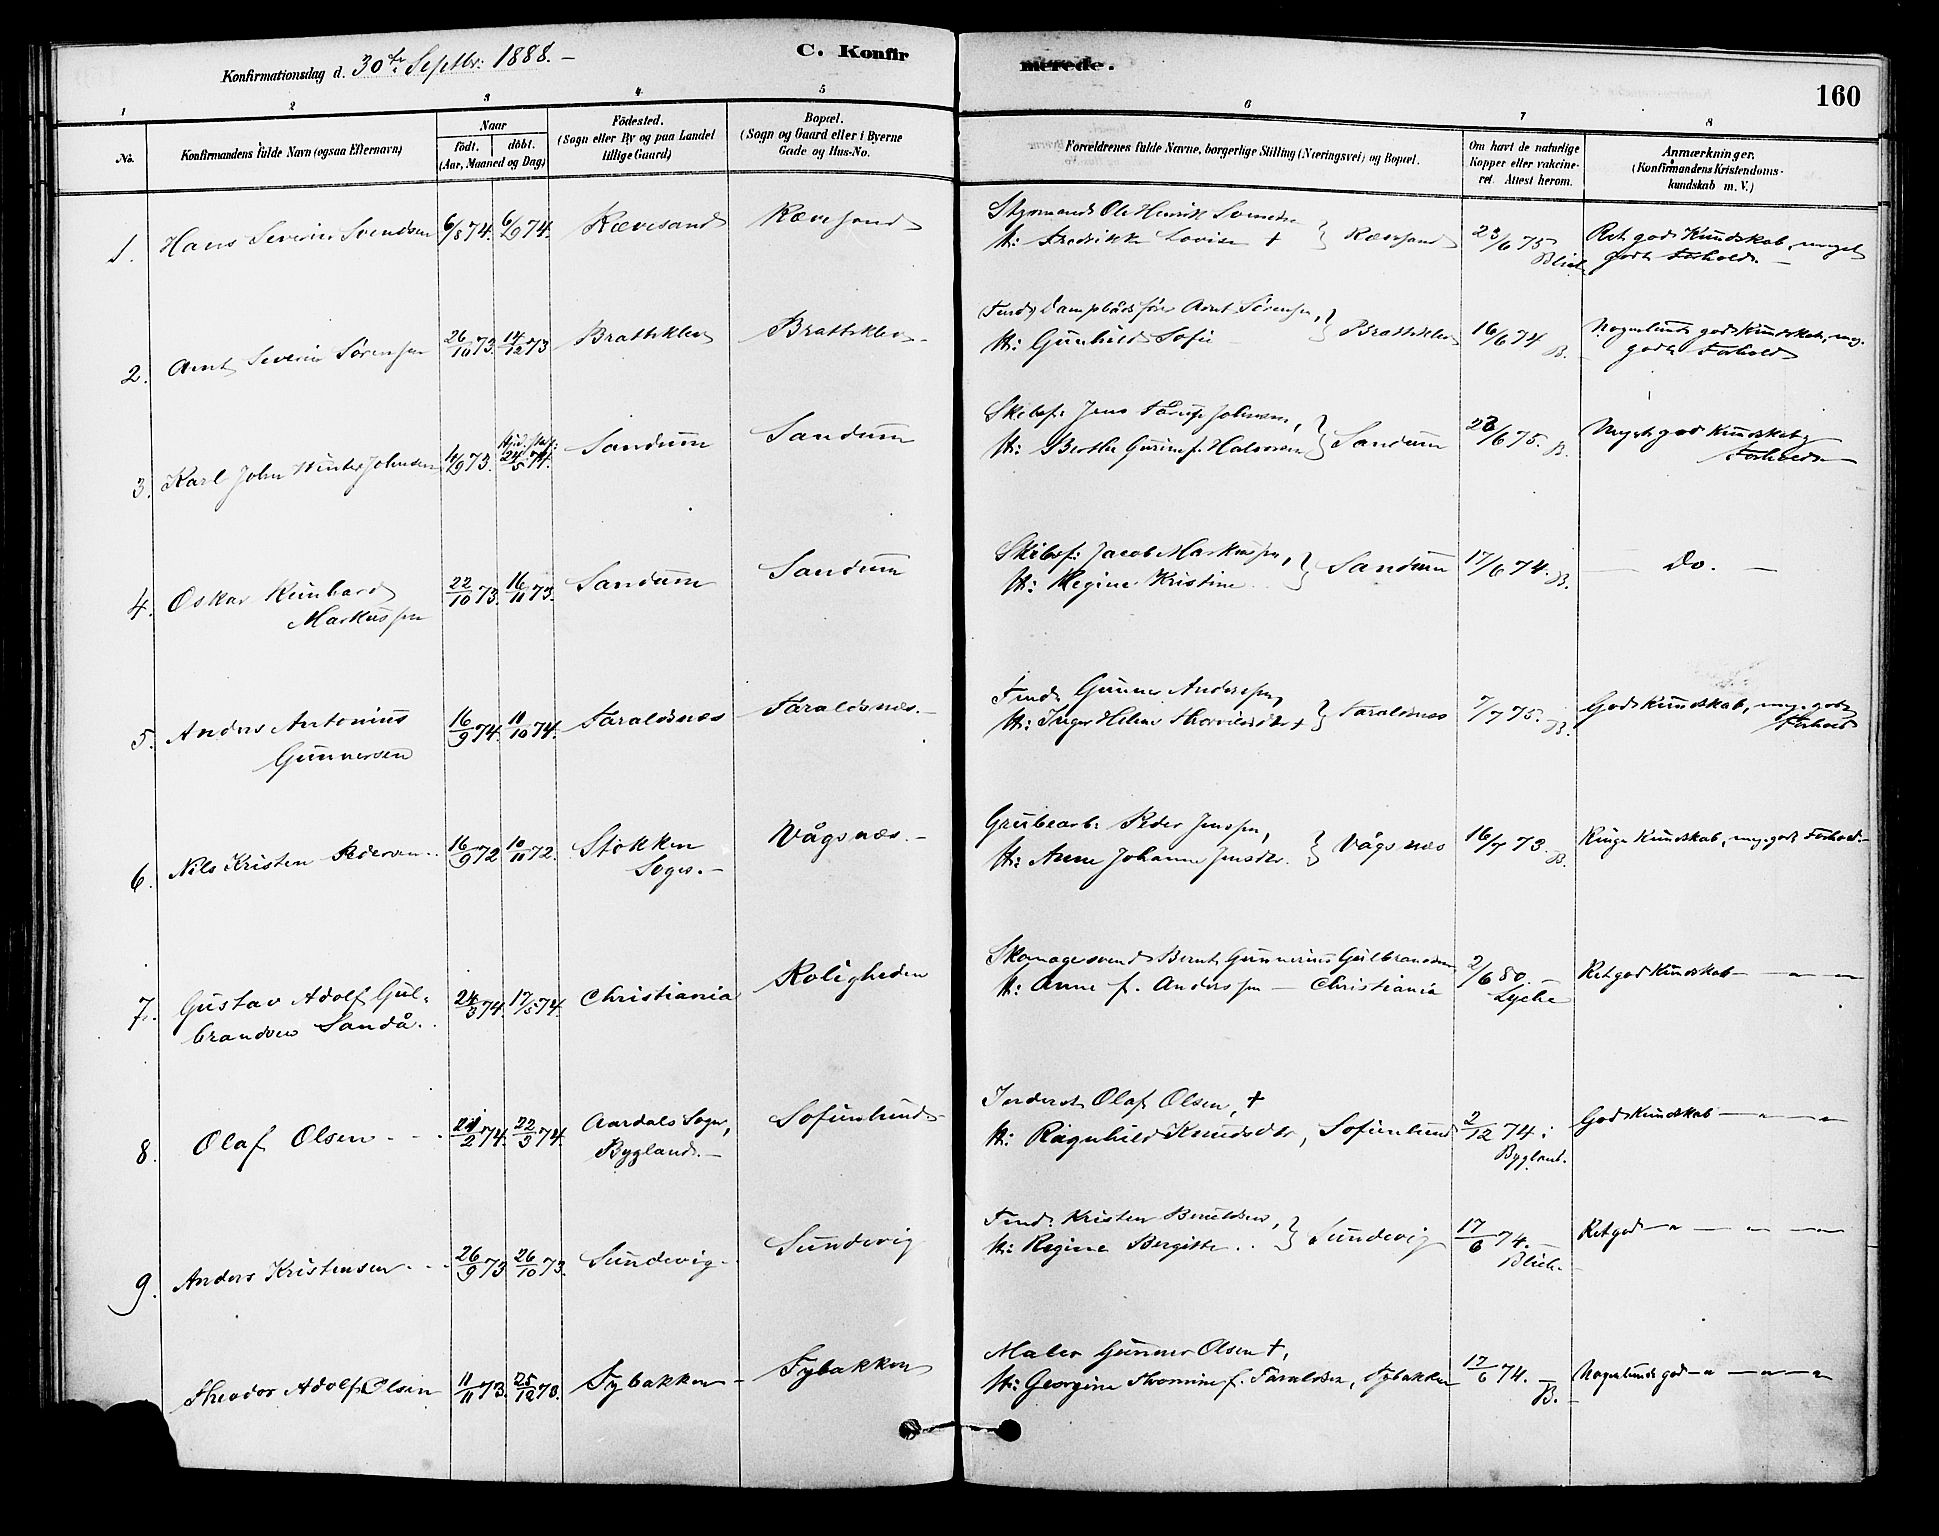 Konfirmationsdag d. 30te Septbr: 1888. –
C. Konfirmerede.
160
1 2 3 4 5 6 7 8
No.
Konfirmandens fulde Navn (ogsaa Efternavn)
Naar
födt. döbt.
(Aar, Maaned og Dag)
Födested.
(Sogn eller By og paa Landet
tillige Gaard)
Bopæl.
(Sogn og Gaard eller i Byerne
Gade og Hus-No.
Forældrenes fulde Navne, borgerlige Stilling (Næringsvei) og Bopæl.
Om havt de naturlige
Kopper eller vakcine-
ret. Attest herom.
Anmærkninger.
(Konfirmandens Kristendoms-
kundskab m. V.)
1. Hans Severin Svendsen 6/8 74. 6/9 74. Rævesand Rævesand
Styrmand Ole Henrik Svendsen
H: Fredrikke Lovise + } Rævesand 23/6 75 Blich
Ret god Kundskab, meget
godt Forhold. –
2. Arnt Severin Sörensen 26/10 73. 14/12 73 Bratteklev Bratteklev.
Arnt Sörensen,
H: Gunhild Sofie } Bratteklev 16/6 74 B.
Nogenlunde god Kundskab, meg.
godt Forhold
3. Karl John Johnsen 4/9 73. 24/5 74. Sandum Sandum
Skibsf: Jens Johnsen,
H: Berthe f. Halvorsen } Sandum 23/6 75. B.
Meget god Kundskab
Forhold
4. Oskar Reinhard
Markussen
22/10 73. 16/11 73. Sandum Sandum
Skibsf: Jacob Markussen,
H: Regine Kristine } Sandum 17/6 74. B.
– Do. –
5. Anders Antonius
Gunnersen
16/9 74. 11/10 74. Faraldsnæs Faraldsnæs. –
Gunner Anderssen,
H: Inger Helene + } Faraldsnæs 7/7 75. B.
God Kundskab, meg. godt
Forhold
6. Nils Kristen Pedersen 16/9 72 10/11 72. Stokken
Sogn. –
Vågsnæs. –
Grubearb: Peder Jenssen,
H: Anne Johanne Jensdtr. } Vågsnæs 16/7 73. B.
Ringe Kundskab, meg. godt Forhold. –
7. Gustav Adolf Gul-
brandsen Sandå.
24/3 74. 17/5 74. Christiania Roligheden
Skomagersvend Bernt Gunnerius Gulbrandsen
H: Anne f. Anderssen – Christiania 2/6 80. – Lyche
Ret god Kundskab – „ – „ –
8. Olaf Olsen 21/2 74. 22/3 74. Aardals Sogn,
Bygland. –
Sofienlund
Inderst Olaf Olsen, +
H: Ragnhild Knudsdtr, Sofienlund 2/12 74. Bygland.
God Kundskab – „ – „ –
9. Anders Kristensen 26/9 73 26/10 73. Sundevig. Sundevig
Kristen
H: Regine Bergitte } Sundevig 17/6 74. – Blich.
Ret god – „ – „ – „ –
Theodor Adolf Olsen 11/11 73. 25/12 73. Tybakken – Tybakken
Maler Gunner Olsen +,
H: Georgine Thomine f. Taraldsen, Tybakken 17/6 74. – B. –
Nogenlunde god – „ – „ – „